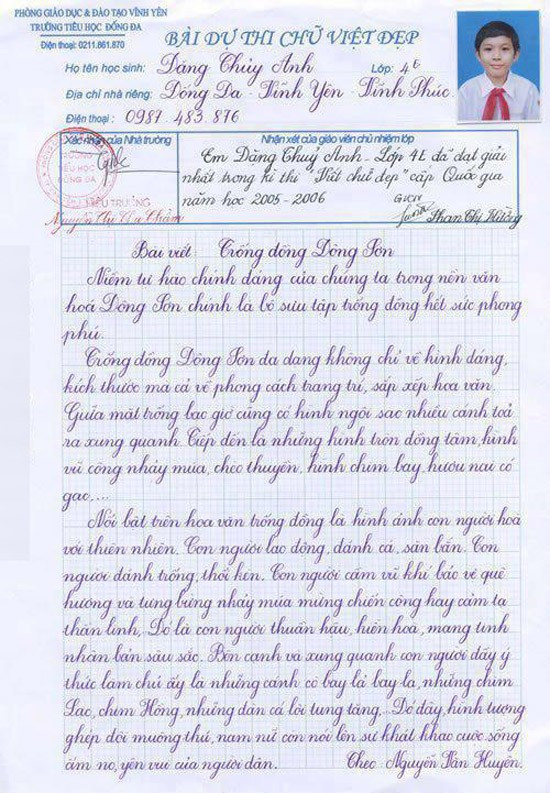 PHÒNG GIÁO DỤC & ĐÀO TẠO VĨNH YÊN
TRƯỜNG TIỂU HỌC ĐỐNG ĐA
Điện thoại: 0211.861.870
BÀI DỰ THI CHỮ VIỆT ĐẸP
Họ tên học sinh: Đặng Thùy Anh Lớp: 4E
Địa chỉ nhà riêng: Đống Đa - Vĩnh Yên - Vĩnh Phúc.
Điện thoại: 0987 483 876
Xác nhận của Nhà trường
Nhận xét của giáo viên chủ nhiệm lớp
Em Đặng Thuỳ Anh - Lớp 4E đã đạt giải
nhất trong kì thi "Viết chữ đẹp" cấp Quốc gia
năm học 2005 - 2006
GVCN
HIỆU TRƯỞNG
Phan Thị Hường
Bài viết: Trống đồng Đông Sơn
Niềm tự hào chính đáng của chúng ta trong nền văn
hoá Đông Sơn chính là bộ sưu tập trống đồng hết sức phong
phú.
Trống đồng Đông Sơn đa dạng không chỉ về hình dáng,
kích thước mà cả về phong cách trang trí, sắp xếp hoa văn.
Giữa mặt trống bao giờ cũng có hình ngôi sao nhiều cánh toả
ra xung quanh. Tiếp đến là những hình tròn đồng tâm, hình
vũ công nhảy múa, chèo thuyền, hình chim bay, hươu nai có
gạc,...
Nổi bật trên hoa văn trống đồng là hình ảnh con người hoà
với thiên nhiên. Con người lao động, đánh cá, săn bắn. Con
người đánh trống, thổi kèn. Con người cầm vũ khí bảo vệ quê
hương và tưng bừng nhảy múa mừng chiến công hay cảm tạ
thần linh,. Đó là con người thuần hậu, hiền hoà, mang tính
nhân bản sâu sắc. Bên cạnh và xung quanh con người đầy ý
thức làm chủ ấy là những cánh cò bay lả bay la, những chim
Lạc, chim Hồng, những đàn cá lội tung tăng,. Đó đây, hình tượng
ghép đôi muông thú, nam nữ còn nói lên sự khát khao cuộc sống
ấm no, yên vui của người dân. Theo: Nguyễn Văn Huyên.